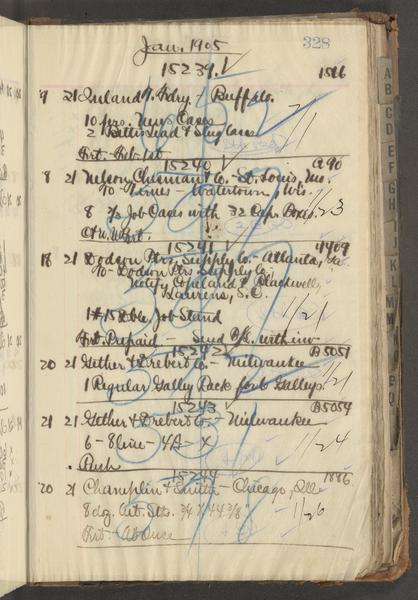 Jan. 1905
328
15239. ✓
1586
9 21 Inland T. Fdry. Buffalo.
10 prs. News Cases
2 Betts Lead & Slug Cases
Frt. Feb 1st
15240
A 90
8 21 Nelson Chesman & Co. - St. Louis, Mo.
To Times Watertown, Wis.
8 2/3 Job Cases with 32 Cap. Boxes.
1/23
C. & N. W. Frt.
15241
4409
18 21 Dodson Ptrs. Supply Co. - Atlanta, Ga
To - Dodson Ptrs Supply Co.
Notify Copeland & Blackwell,
Laurens, S.C.
1 #15 Dble Job Stand
1/21
Frt. Prepaid - Send B/L with inv
15242
A 5051
20 21 Gether & Drebert Co. - Milwaukee
1 Regular Galley Rack for 6 Galleys.
1/21
15243
B 5054
21 21 Gether & Drebert Co. - Milwaukee
6 - 8 line - 4A - X
1/24
Rush
15244
1886
20 21 Champlin & Smith - Chicago, Ill.
8 doz. 3/4 X 44 3/8"
1/26
Frt - At Once
A
B
C
D
E
F
G
H
I
J
K
L
M